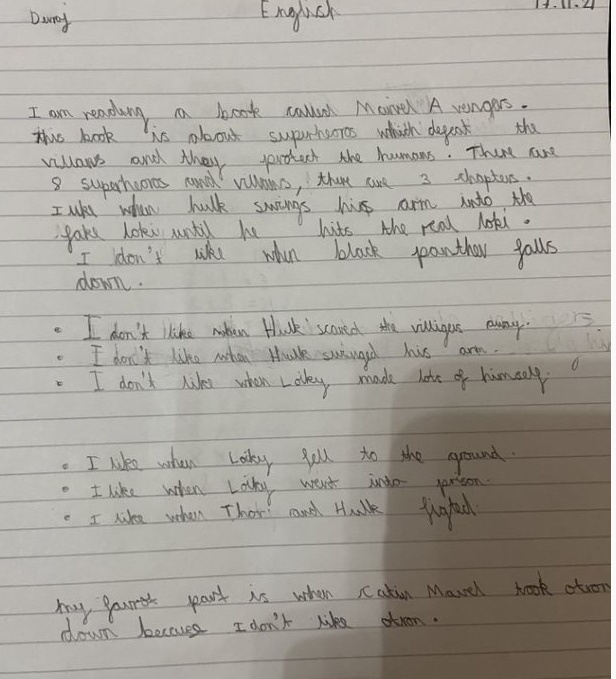 English 17.11.21
I am reading a book called Marvel Avengers.
this book is about superheros which defeat the
villans and they protect the humans. There are
8 superheros and villans, there are 3 chapters.
I like when hulk swings his arm into the
fake loki until he hits the real loki.
I don't like when black panther falls
down.
• I don't like when Hulk scared the villigers away.
• I don't like when Hulk swinged his arm.
• I don't like when Loky made lots of himself.
• I like when Loky fell to the ground.
• I like when Loky went into prison.
• I like when Thor and Hulk fighted.
my favrot part is when Catin Mavel took otron
down becuse I don't like otron.